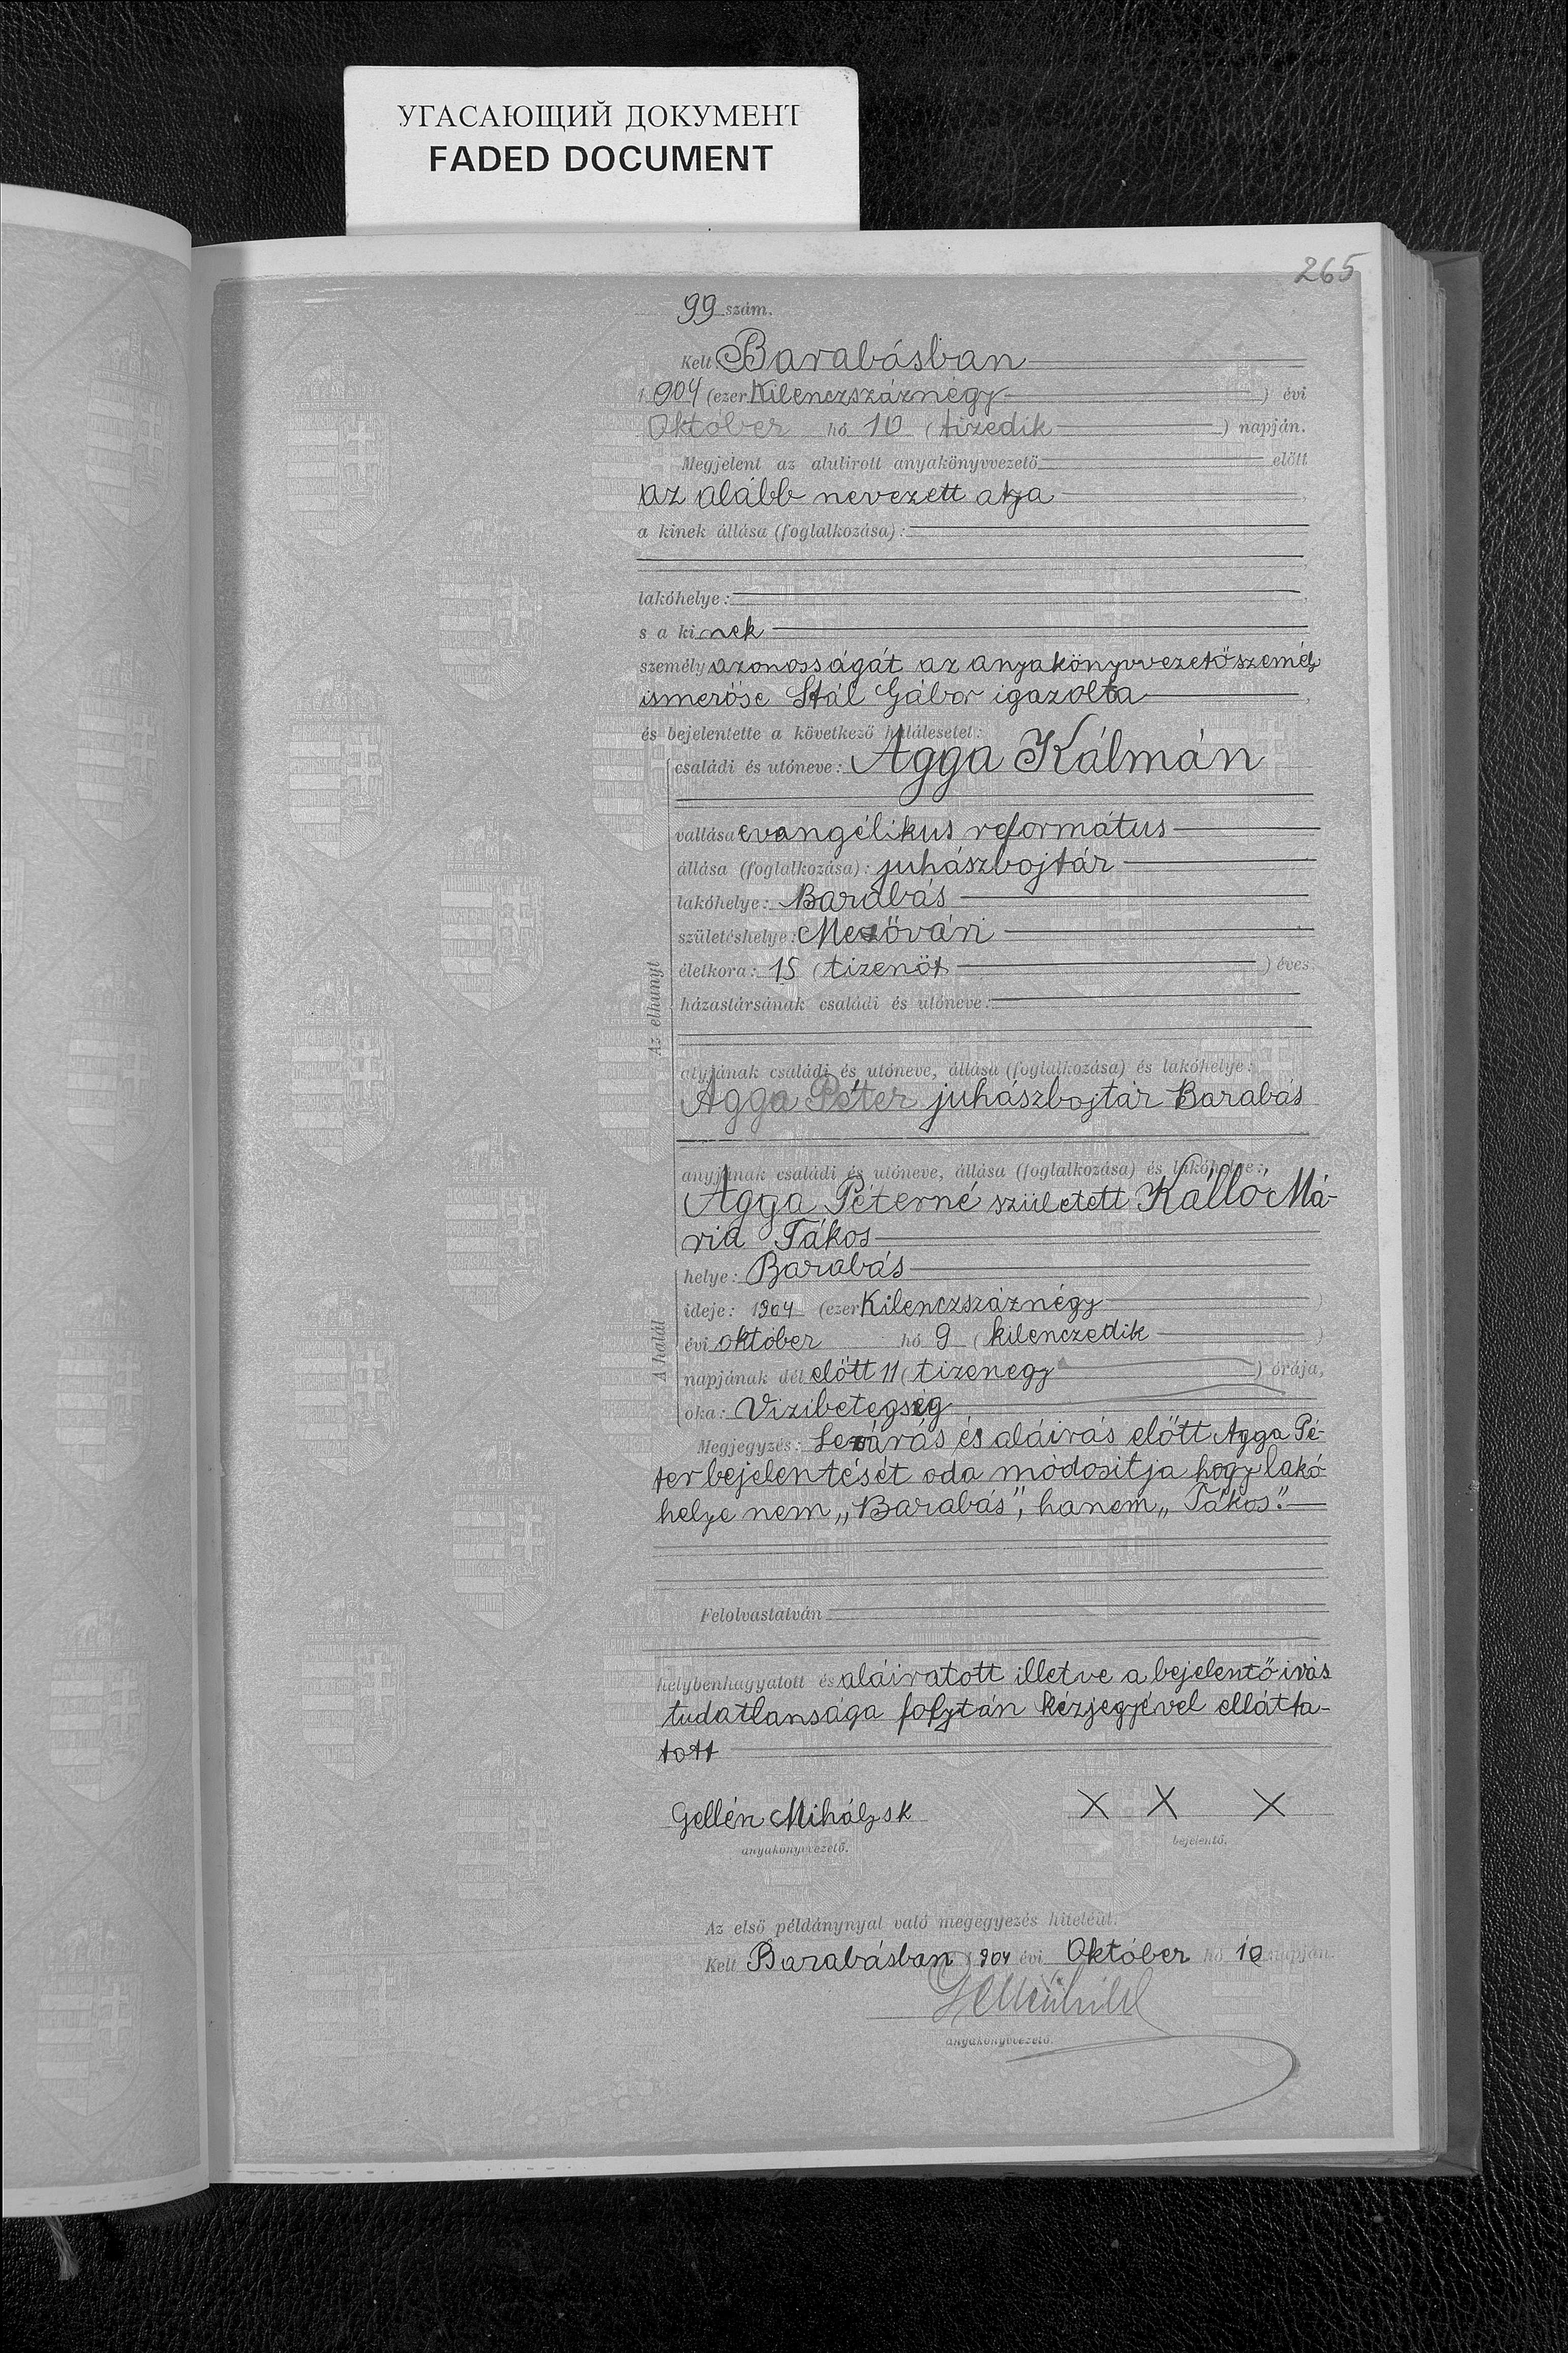 УГАСАЮЩИЙ ДОКУМЕНТ
FADED DOCUMENT
265
99 szám.
Kelt Barabásban
1904 (ezer Kilenczszáznégy) évi
Október hó 10 (tizedik) napján.
Megjelent az alulirott anyakönyvvezető előtt
az alább nevezett atya,
a kinek állása (foglalkozása):
lakóhelye:
s a kinek
személyazonosságát az anyakönyvvezető személy
ismerőse Stál Gábor igazolta,
és bejelentette a következő halálesetet:
Az elhunyt
családi és utóneve: Agga Kálmán
vallása evangélikus református
állása (foglalkozása): juhászbojtár
lakóhelye: Barabás
születéshelye: Mezővári
életkora: 15 (tizenöt) éves
házastársának családi és utóneve:
atyjának családi és utóneve, állása (foglalkozása) és lakóhelye:
Agga Péter juhászbojtár Barabás
anyjának családi és utóneve, állása (foglalkozása) és lakóhelye:
Agga Péterné született Kálló Má-
ria Tákos
A halál
helye: Barabás
ideje: 1904 (ezer Kilenczszáznégy)
évi október hó 9 (kilenczedik)
napjának dél előtt 11 (tizenegy) órája,
oka: Vizibetegség
Megjegyzés: Lezárás és aláirás előtt Agga Pé-
ter bejelentését oda módositja hogy lakó-
helye nem „Barabás", hanem „Tákos".
Felolvastatván
helybenhagyatott és aláiratott illetve a bejelentő irás
tudatlansága folytán kézjegyével ellátta-
tott
Gellén Mihály sk X X X
anyakönyvvezető. bejelentő.
Az első példánynyal való megegyezés hiteléül.
Kelt Barabásban 1904 évi Október hó 10 napján.
anyakönyvvezető.